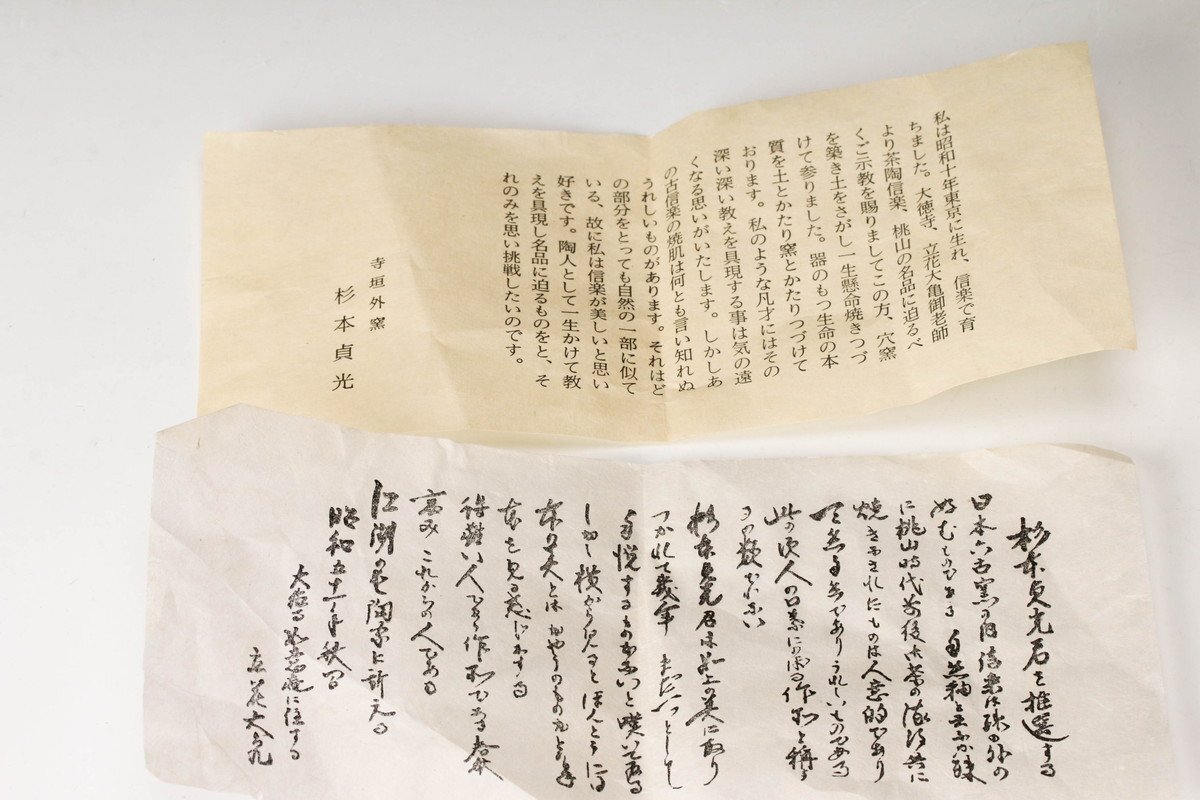 私は昭和十年東京に生れ、信楽で育
ちました。大徳寺、立花大亀御老師
より茶陶信楽、桃山の名品に迫るべ
くご示教を賜りましてこの方、穴窯
を築き土をさがし一生懸命焼きつづ
けて参りました。器のもつ生命の本
質を土とかたり窯とかたりつづけて
おります。私のような凡才にはその
深い深い教えを具現する事は気の遠
くなる思いがいたします。しかしあ
の古信楽の焼肌は何とも言い知れぬ
うれしいものがあります。それはど
の部分をとっても自然の一部に似て
いる、故に私は信楽が美しいと思い
好きです。陶人として一生かけて教
えを具現し名品に迫るものをと、そ
れのみを思い挑戦したいのです。
寺垣外窯
杉本貞光
杉本貞光君を推選する
日本六古窯の内信楽は殊の外の
好むものである 自然釉と云ふか殊
に桃山時代前後御茶の流行と共に
焼き出されたものは人意的であり
此の頃人の口業にのぼる作品と称
杉本貞光君は如上の美に取り
つかれて幾年 まだ一つとして
自悦するものがないと嘆いて居る
しかし横から見るとほんとうによ
得難い人である作品である
高み これからの人である
江湖の愛陶家に訴える
昭和五十一年秋
大徳寺如意庵に住する
立花大亀